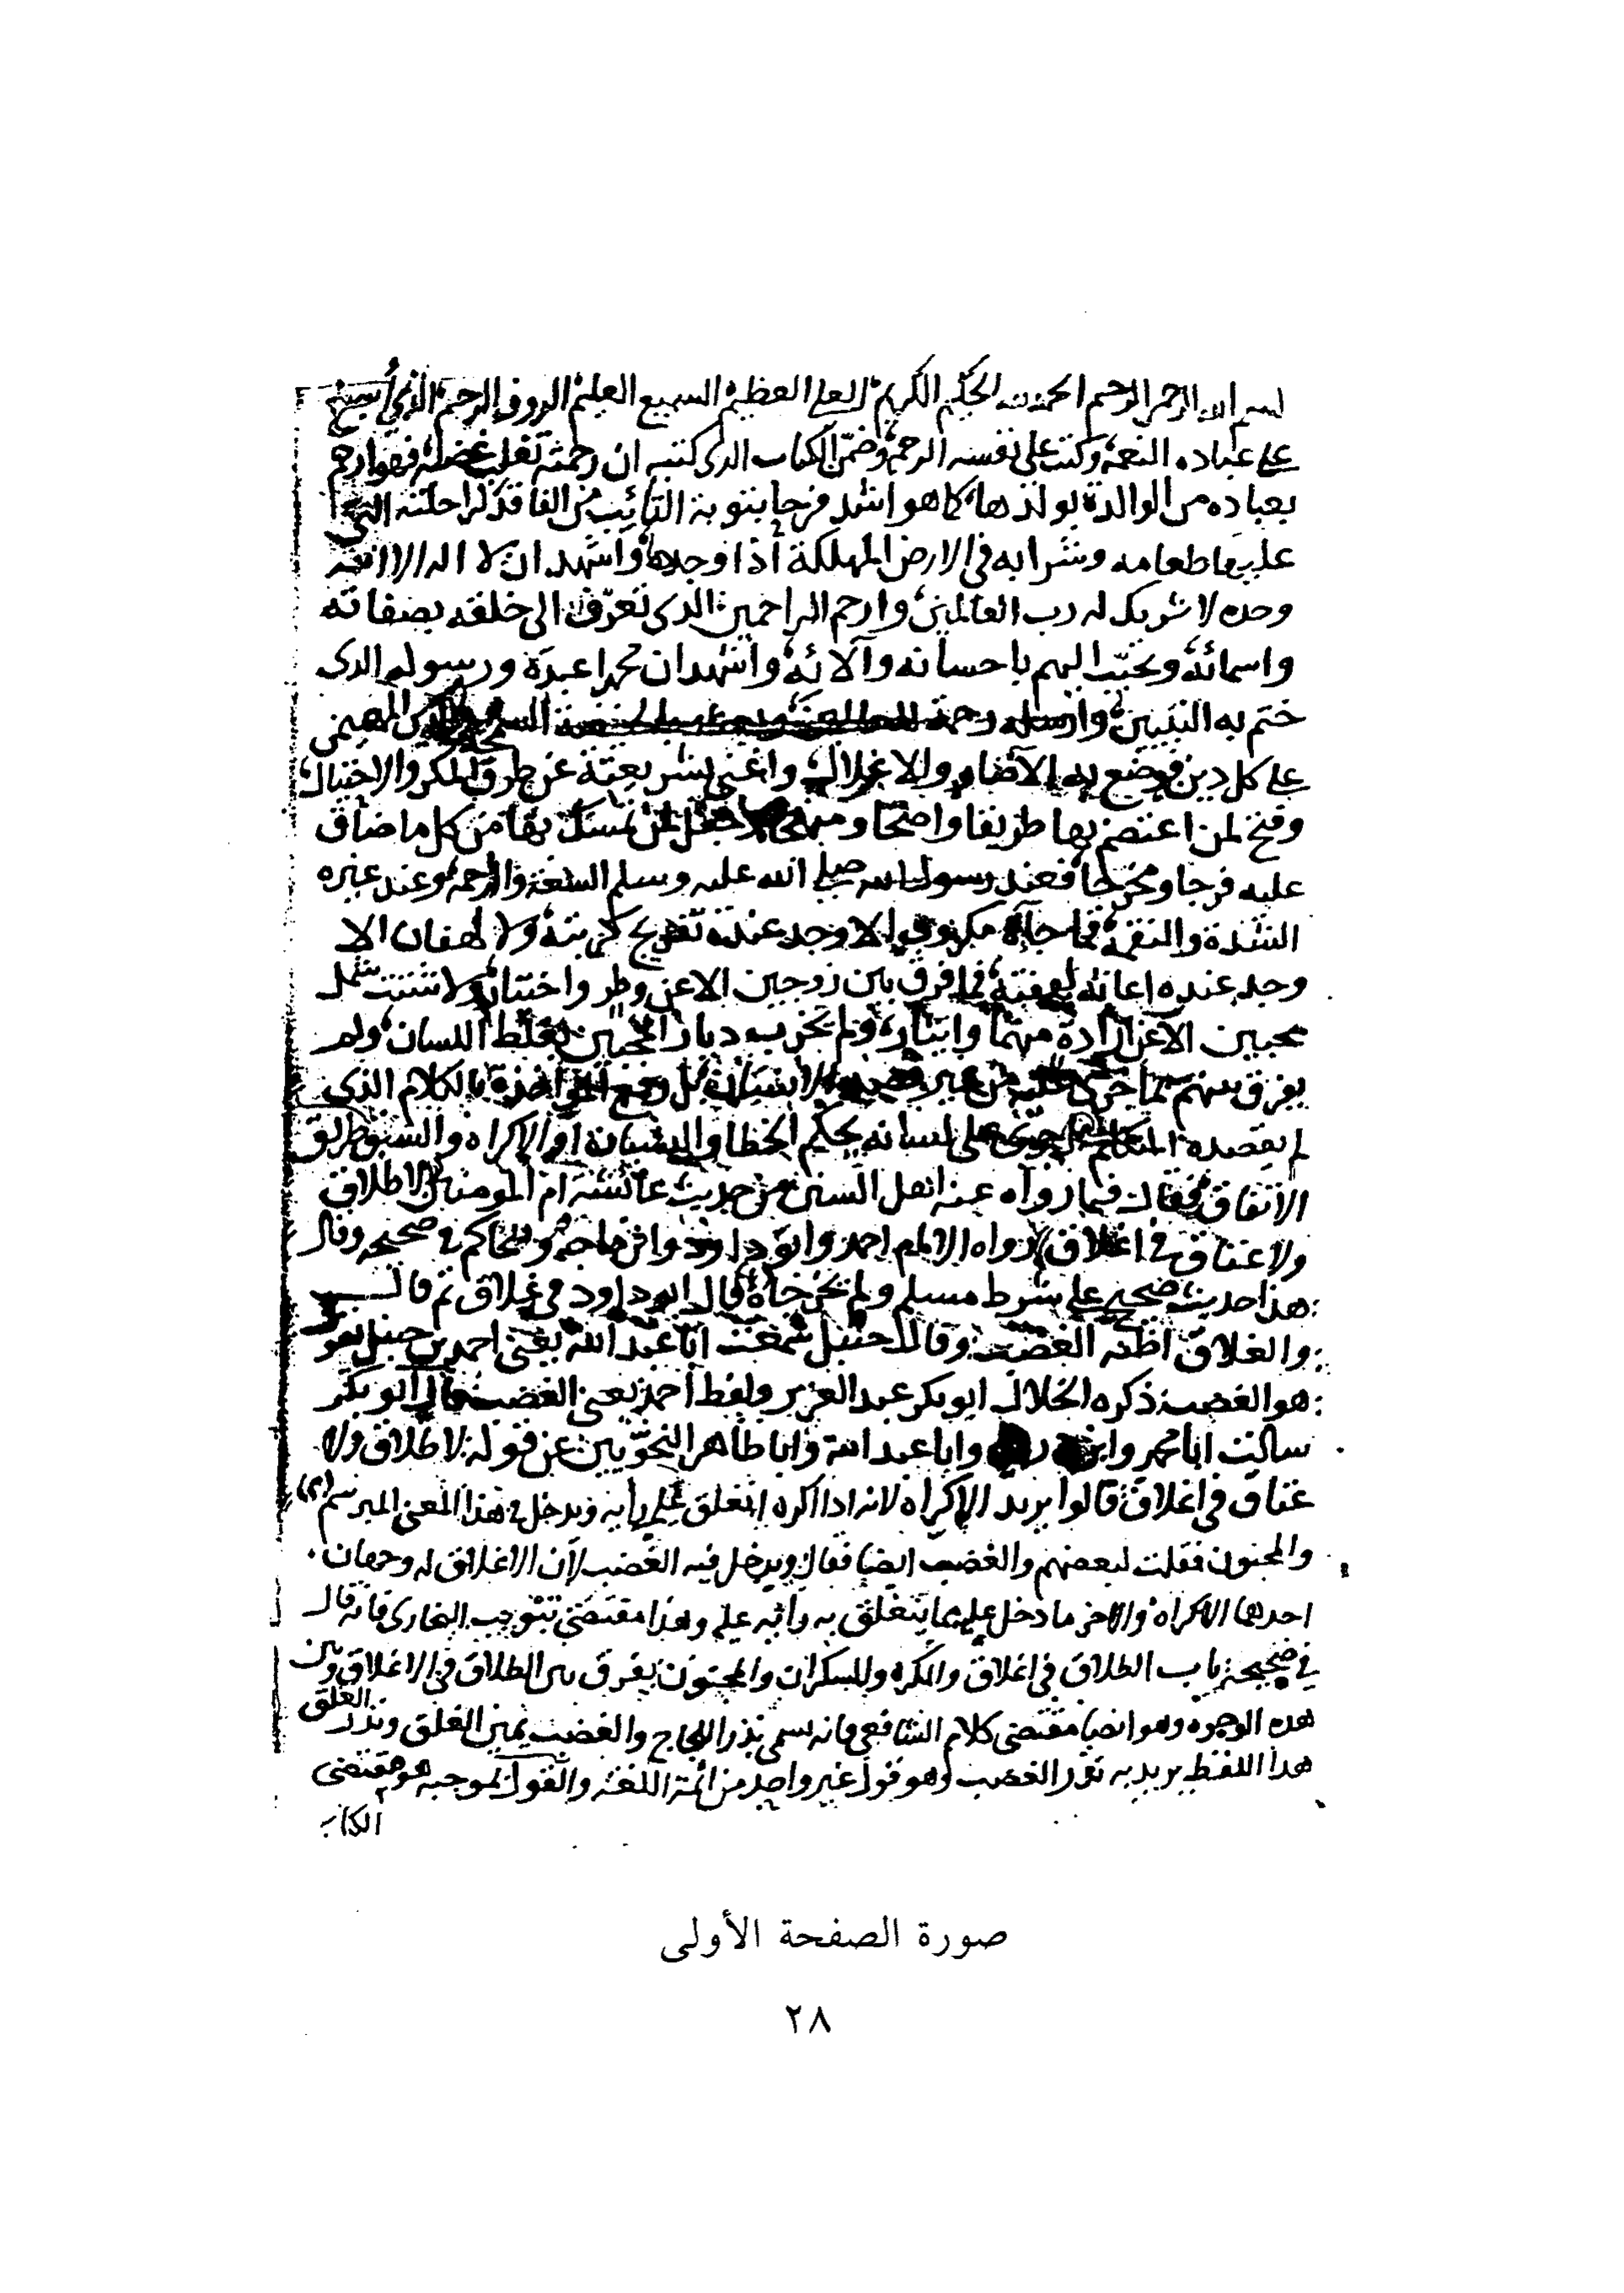 بسم الله الرحمن الرحيم الحمد لله الحكيم الكريم العلي العظيم السميع العليم الروف الرحيم الذي أسبغ
على عباده النعمة وكتب على نفسه الرحمة وضمن الكتاب الذي كتبه ان رحمته تغلب غضبه فهو ارحم
بعباده من الوالدة بولدها كما هو اشد فرحا بتوبة التائب من الفاقد لراحلته التي
عليها طعامه وشرابه في الارض المهلكة اذا وجدها واشهد ان لا اله الا الله
وحده لا شريك له رب العالمين وارحم الراحمين الذي تعرف الى خلقه بصفاته
واسمائه وتحبب اليهم باحسانه وآلائه واشهد ان محمدا عبده ورسوله الذي
ختم به النبيين وارسله رحمة المهيمن
على كل دين فوضع به الآصار والاغلال واغنى بشريعته عن طرق المكر والاحتيال
وفتح لمن اعتصم بها طريقا واضحا وجعل لمن تمسك بها من كل ما ضاق
عليه فرجا ومخرجا فعند رسول الله صلى الله عليه وسلم السعة والرحمة وعند غيره
الشدة والنقمة فما جاءه مكروب الا وجد عنده تفريج كربته ولا لهفان الا
وجد عنده اغاثة لهفته فما فرق بين زوجين الا عن وطر واختيار ولا شتت شمل
محبين الا عن ارادة منهما وايثار ولم يخرب ديار المحبين بغلط اللسان ولم
يفرق بينهم بما جرى عليه من غير بل رفع المواخذة بالكلام الذي
لم يقصده المتكلم بل جرى على لسانه بحكم الخطا والنسيان او الاكراه والسبق طريق
الاتفاق فقال فيما رواه عنه اهل السنن من حديث عائشة ام المومنين لا طلاق
ولا عتاق في اغلاق رواه الامام احمد وابو داود وابن ماجه والحاكم في صحيحه وقال
هذا حديث صحيح على شرط مسلم ولم يخرجاه قال ابو داود في غلاق ثم قال
والغلاق اظنه الغضب وقال حنبل سمعت ابا عبد الله يعني احمد بن حنبل يقول
هو الغضب ذكره الخلال ابو بكر عبد العزيز ولفظ احمد يعني الغضب قال ابو بكر
سالت ابا محمد وابن وابا عبد الله وابا طاهر النحويين عن قوله لا طلاق ولا
عتاق في اغلاق قالوا يريد الاكراه لانه اذا اكره انغلق عليه رأيه ويدخل في هذا المعنى المبرسم
والمجنون فقلت لبعضهم والغضب ايضا فقال ويدخل فيه الغضب لان الاغلاق له وجهان
احدهما الاكراه والاخر ما دخل عليه مما ينغلق به رائه عليه وهذا مقتضى تبويب البخاري فانه قال
في صحيحه باب الطلاق في اغلاق والمكره والسكران والمجنون يفرق بين الطلاق في الاغلاق وبين
هذه الوجوه وهو ايضا مقتضى كلام الشافعي فانه يسمي نذر اللجاج والغضب يمين الغلق ونذر الغلق
هذا اللفظ يريد به نذر الغضب وهو قول غير واحد من ائمة اللغة والقول بموجبه هو مقتضى
الكتاب
صورة الصفحة الأولى
٢٨